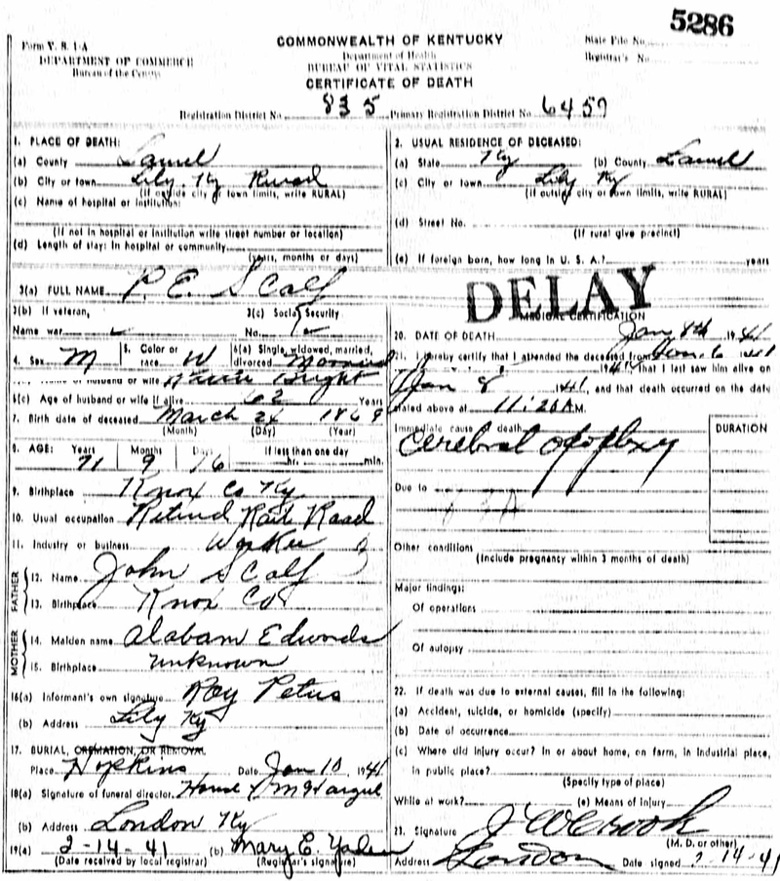 5286
Form V. S. 1-A
DEPARTMENT OF COMMERCE
Bureau of the Census
COMMONWEALTH OF KENTUCKY
Department of Health
BUREAU OF VITAL STATISTICS
CERTIFICATE OF DEATH
State File No.
Registrar's No.
Registration District No. 835 Primary Registration District No. 6457
1. PLACE OF DEATH:
(a) County Laurel
(b) City or town Lily, Ky Rural
(If outside city or town limits, write RURAL)
(c) Name of hospital or institution:
(If not in hospital or institution write street number or location)
(d) Length of stay: In hospital or community
(years, months or days)
2. USUAL RESIDENCE OF DECEASED:
(a) State Ky (b) County Laurel
(c) City or town Lily Ky
(If outside city or town limits, write RURAL)
(d) Street No.
(If rural give precinct)
(e) If foreign born, how long in U. S. A.? years
3(a) FULL NAME P. E. Scalf
3(b) If veteran, 3(c) Social Security
Name war No.
4. Sex M 5. Color or race W 6(a) Single, widowed, married, divorced Married
name of husband or wife Bright
6(c) Age of husband or wife if alive 62 Years
7. Birth date of deceased March 24 1869
(Month) (Day) (Year)
8. AGE: Years Months Days If less than one day
71 9 16 hr. min.
9. Birthplace Knox Co Ky
10. Usual occupation Retired Rail Road
11. Industry or business Worker
FATHER
12. Name John Scalf
13. Birthplace Knox Co
MOTHER
14. Maiden name Alabam Edwards
15. Birthplace unknown
16(a) Informant's own signature Roy Petus
(b) Address Lily Ky
17. BURIAL, CREMATION, OR REMOVAL
Place Hopkins Date Jan 10 1941
18(a) Signature of funeral director House McHargue
(b) Address London Ky
19(a) 2-14-41 (b) Mary E. Yaden
(Date received by local registrar) (Registrar's signature)
DELAY
MEDICAL CERTIFICATION
20. DATE OF DEATH Jan 8th 1941
21. I hereby certify that I attended the deceased from Jan. 6 1941
1941 that I last saw him alive on
Jan 8 1941, and that death occurred on the date
stated above at 11:20 A.M.
Immediate cause of death
DURATION
Cerebral apoplexy
Due to
Other conditions
(Include pregnancy within 3 months of death)
Major findings:
Of operations
Of autopsy
22. If death was due to external causes, fill in the following:
(a) Accident, suicide, or homicide (specify)
(b) Date of occurrence
(c) Where did injury occur? In or about home, on farm, in industrial place,
in public place?
(Specify type of place)
While at work? (e) Means of injury
23. Signature J W Crook
(M. D. or other)
Address London Date signed 2-14-41